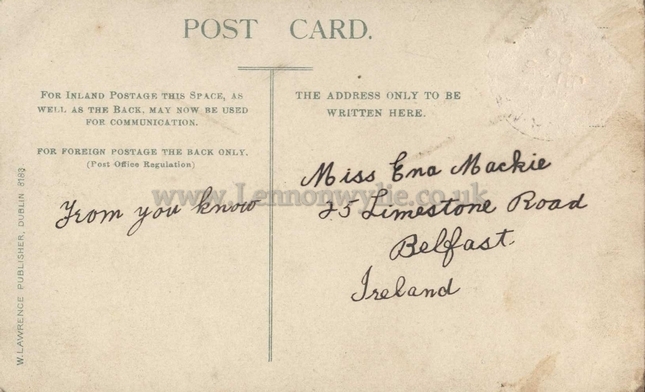 POST CARD.
FOR INLAND POSTAGE THIS SPACE, AS
WELL AS THE BACK, MAY NOW BE USED
FOR COMMUNICATION.
FOR FOREIGN POSTAGE THE BACK ONLY.
(Post Office Regulation)
THE ADDRESS ONLY TO BE
WRITTEN HERE.
From you know
Miss Ena Mackie
25 Limestone Road
Belfast.
Ireland
W.LAWRENCE PUBLISHER, DUBLIN
www.Lennonwylie.co.uk